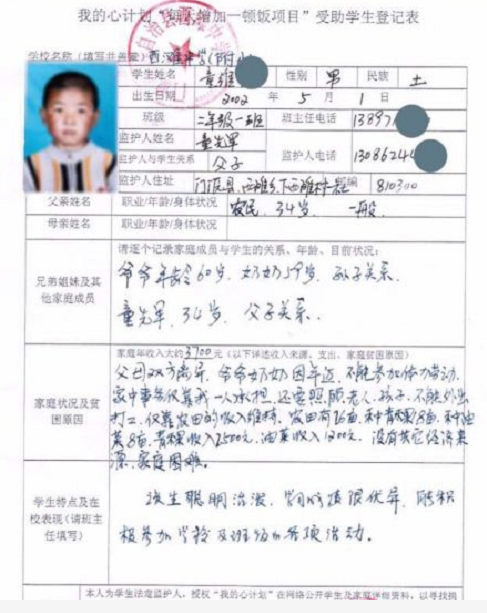 我的心计划“每天增加一顿饭项目”受助学生登记表
学校名称(填写并盖章)西滩中学(附小)
学生姓名 童雄 性别 男 民族 土
出生日期 2002 年 5 月 1 日
班级 二年级一班 班主任电话 13897
监护人姓名 童先军
监护人与学生关系 父子 监护人电话 13086244
监护人住址 门源县西滩乡下西滩村 邮编 810300
父亲姓名 职业/年龄/身体状况 农民、34岁、一般
母亲姓名 职业/年龄/身体状况
兄弟姐妹及其他家庭成员
请逐个记录家庭成员与学生的关系、年龄、目前状况:
爷爷年龄60岁、奶奶59岁、孙子关系.
童先军、34岁、父子关系.
家庭状况及贫困原因
家庭年收入大约3700元(以下详述收入来源、支出、家庭贫困原因)
父母双方离异、爷爷奶奶因年迈、不能参加体力劳动,
家中事务仅靠我一人承担、还要照顾老人、孩子、不能外出
打工、仅靠农田的收入维持、农田有16亩、种青稞8亩、种油
菜8亩、青稞收入2500元、油菜收入1200元、没有其它经济来
源、家庭困难。
学生特点及在校表现(请班主任填写)
该生聪明活泼、学习成绩很优异、能积
极参加学校及班级的各项活动。
本人为学生法定监护人,授权“我的心计划”在网络公开学生及家庭详细资料,以寻找捐